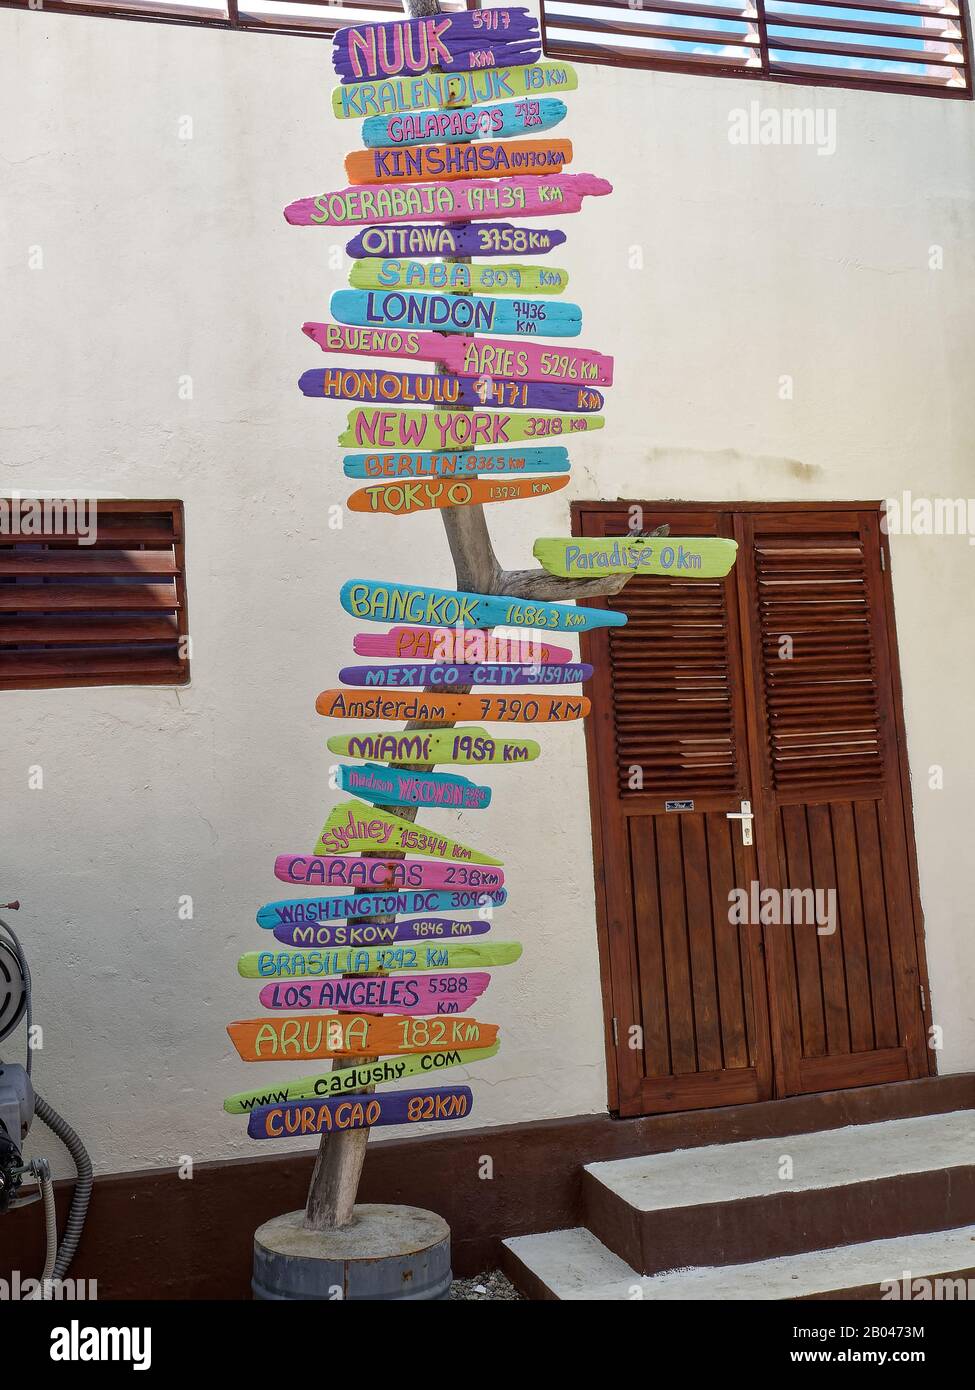 NUUK 5917 KM
KRALENDIJK 18 KM
GALAPAGOS 2951 KM
KINSHASA 10470 KM
SOERABAJA 19439 KM
OTTAWA 3758 KM
SABA 809 KM
LONDON 7436 KM
BUENOS ARIES 5296 KM
HONOLULU 9471 KM
NEW YORK 3218 KM
BERLIN 8365 KM
TOKYO 13921 KM
Paradise 0 km
BANGKOK 16863 KM
KM
MEXICO CITY 3459 KM
AMSTERDAM 7790 KM
MIAMI 1959 KM
madison WISCONSIN
Sydney 15344 KM
CARACAS 238 KM
WASHINGTON DC 3096 KM
MOSKOW 9846 KM
BRASILIA 4292 KM
LOS ANGELES 5588 KM
ARUBA 182 KM
www.cadushy.com
CURACAO 82 KM
a
alamy
Image ID: 2B0473M
www.alamy.com